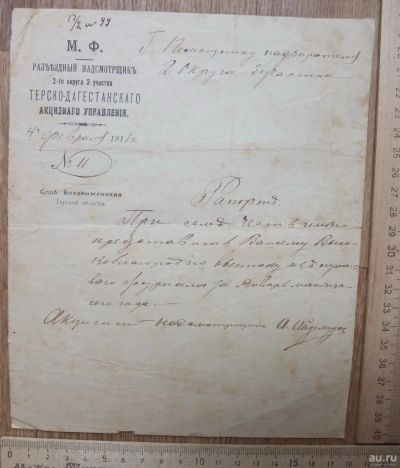 17/2 № 99
М. Ф.
РАЗЪѢЗДНЫЙ НАДСМОТРЩИКЪ
2-го округа 3 участка
ТЕРСКО-ДАГЕСТАНСКАГО
АКЦИЗНАГО УПРАВЛЕНІЯ.
4го февраля 1911 г.
№ 11
Слоб. Воздвиженская
Терской области.
Г. Помощнику надзирателя
2 Округа 3 участка
Рапортъ.
При семъ честь имѣю
представить Вашему Высо-
коблагородію
журнала за Январь мѣсяцъ
сего года.
Акцизный надсмотрщикъ А.
au.ru